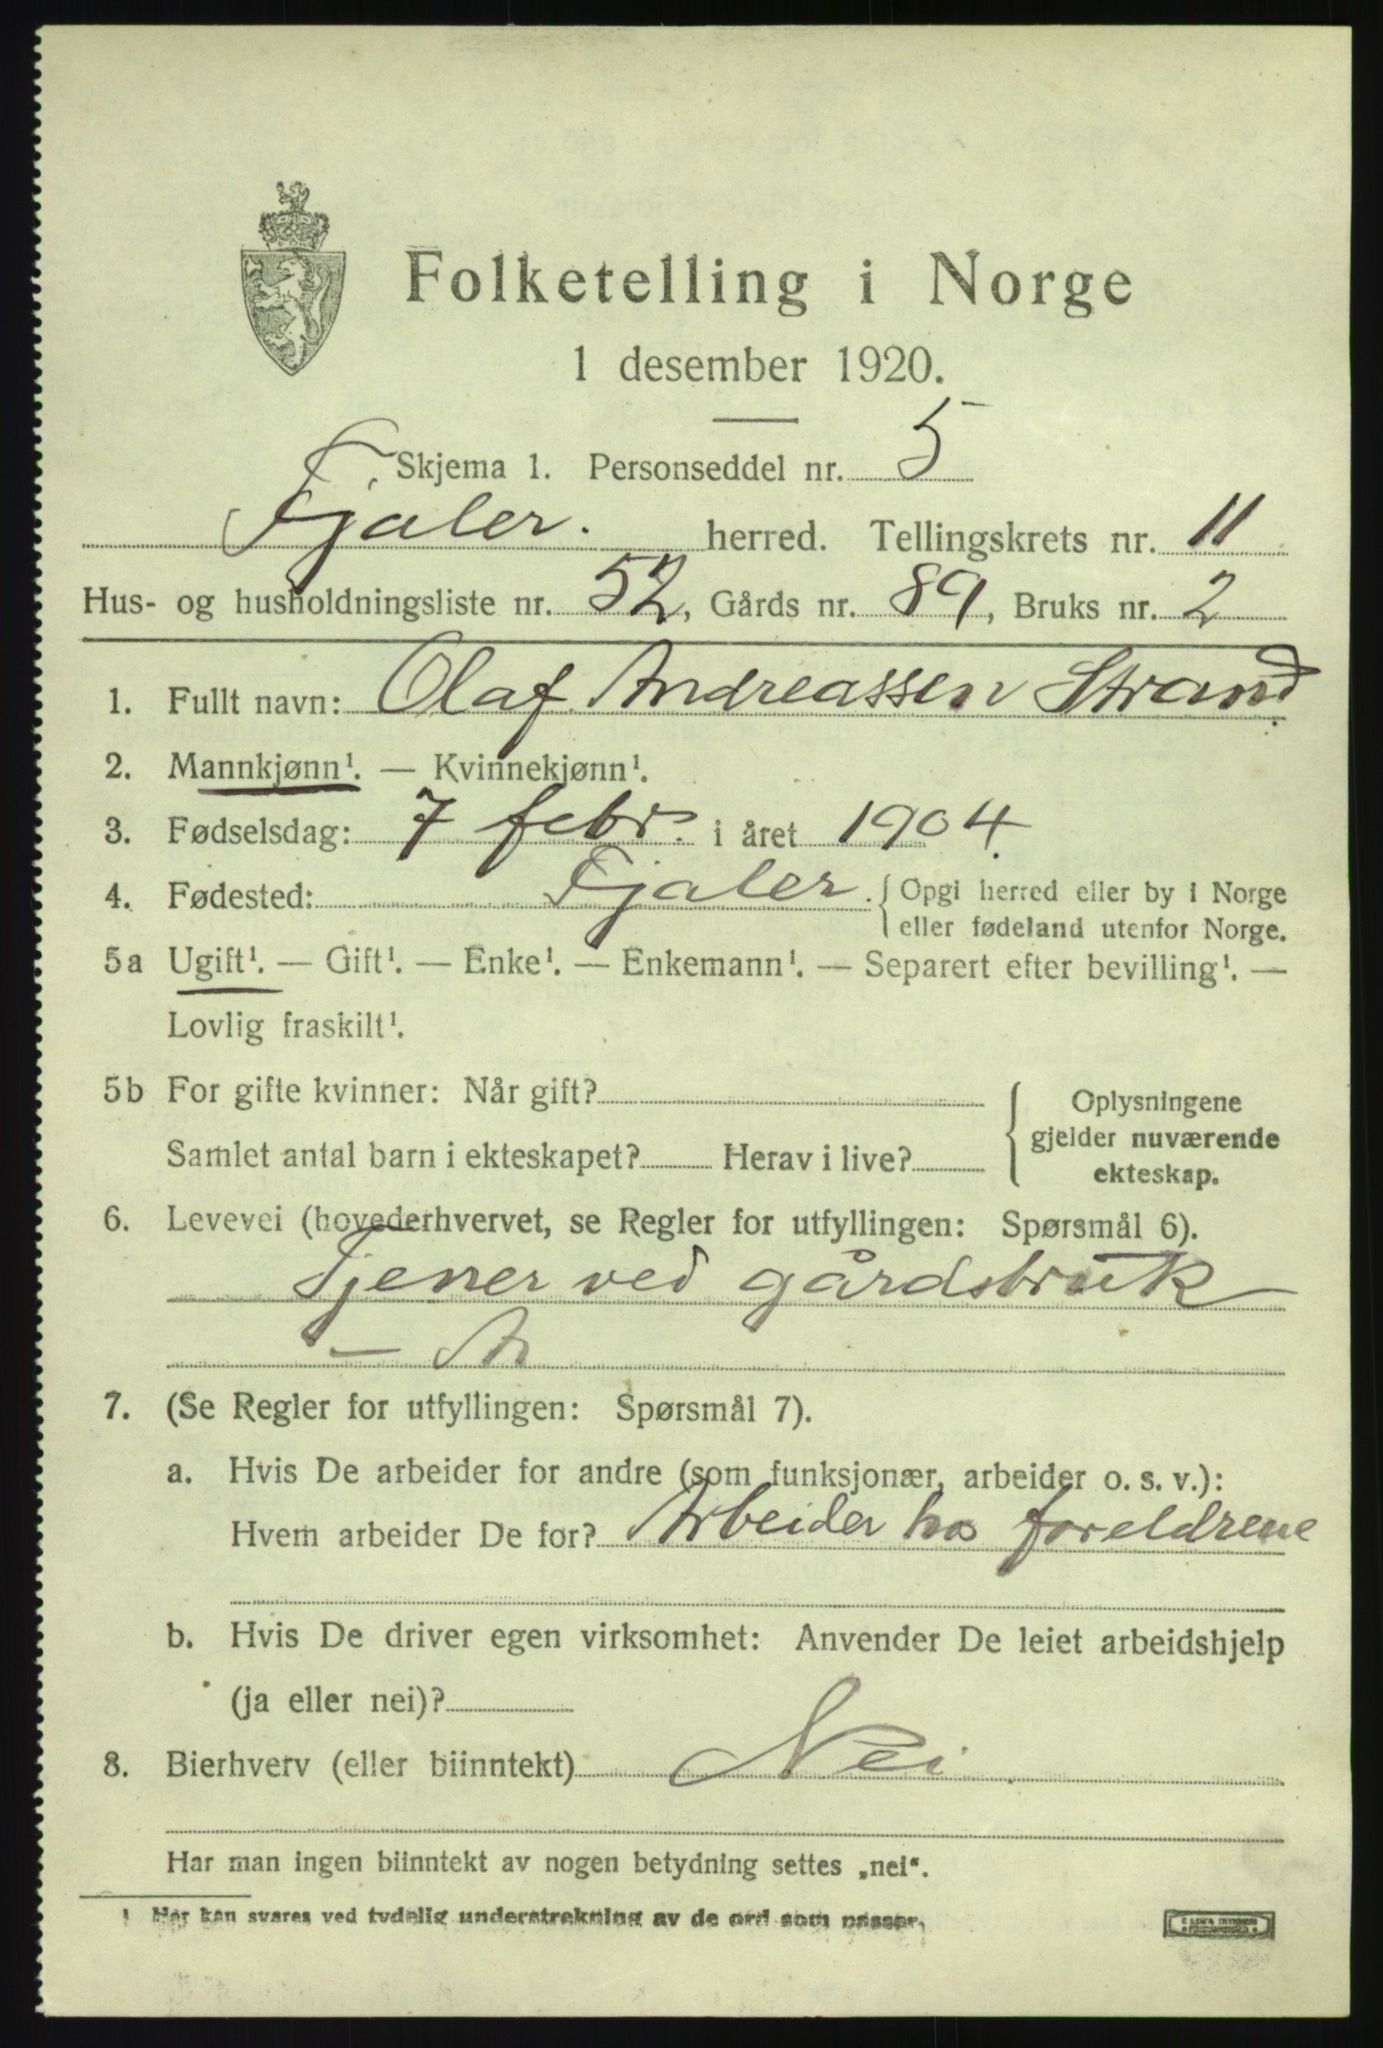 Folketelling i Norge
1 desember 1920.
Skjema 1. Personseddel nr. 5
Fjaler. herred. Tellingskrets nr. 11
Hus- og husholdningsliste nr. 52, Gårds nr. 89, Bruks nr. 2
1. Fullt navn: Olaf Andreassen Strand.
2. Mannkjønn¹. — Kvinnekjønn¹.
3. Fødselsdag: 7 febr. i året 1904.
4. Fødested: Fjaler. { Opgi herred eller by i Norge
eller fødeland utenfor Norge.
5a Ugift¹. — Gift¹. — Enke¹. — Enkemann¹. — Separert efter bevilling¹. —
Lovlig fraskilt¹.
5b For gifte kvinner: Når gift?
Samlet antal barn i ekteskapet? Herav i live?
{ Oplysningene
gjelder nuværende
ekteskap.
6. Levevei (hovederhvervet, se Regler for utfyllingen: Spørsmål 6).
Tjener ved gårdsbruk
— A
7. (Se Regler for utfyllingen: Spørsmål 7).
a. Hvis De arbeider for andre (som funksjonær, arbeider o. s. v.):
Hvem arbeider De for? Arbeider hos foreldrene
b. Hvis De driver egen virksomhet: Anvender De leiet arbeidshjelp
(ja eller nei)?
8. Bierhverv (eller biinntekt) Nei.
Har man ingen biinntekt av nogen betydning settes „nei“.
¹ Her kan svares ved tydelig understrekning av de ord som passer.